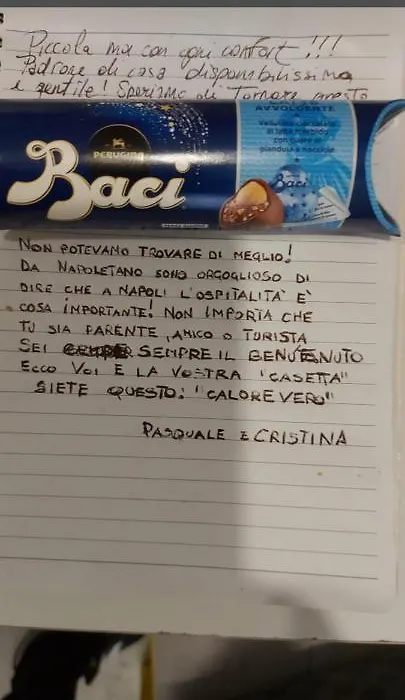 Piccola ma con ogni confort!!!
Padrone di casa disponibilissima
e gentile! Speriamo di tornare presto
AVVOLGENTE
al latte morbido
con cuore di
gianduia e nocciole
PERUGINA
Baci
Baci
NON POTEVAMO TROVARE DI MEGLIO!
DA NAPOLETANO SONO ORGOGLIOSO DI
DIRE CHE A NAPOLI L'OSPITALITÀ È
COSA IMPORTANTE! NON IMPORTA CHE
TU SIA PARENTE, AMICO O TURISTA
SEI SEMPRE IL BENVENUTO
ECCO VOI E LA VOSTRA "CASETTA"
SIETE QUESTO: "CALORE VERO"
PASQUALE E CRISTINA